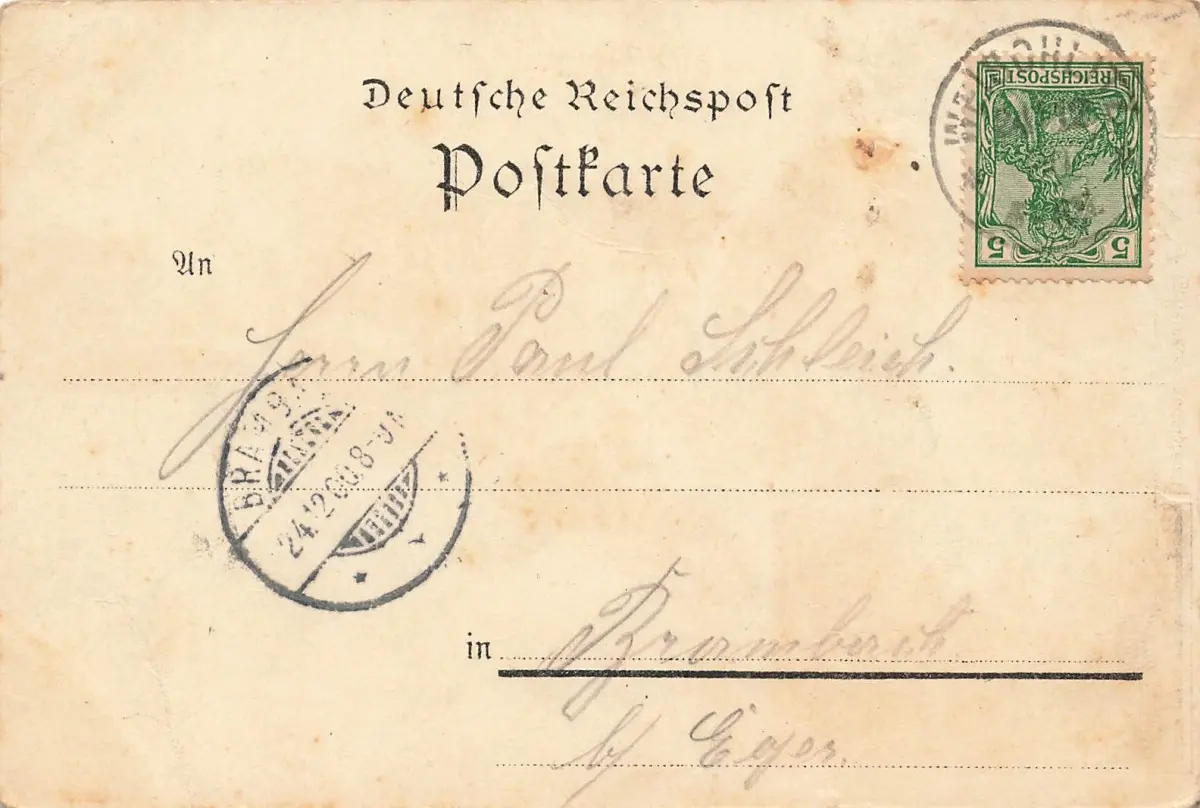 Deutsche Reichspost
Postkarte
REICHSPOST
5 5
An
Herrn Paul Schleich.
24.12.00.8-9
in Brambach
b/ Eger.